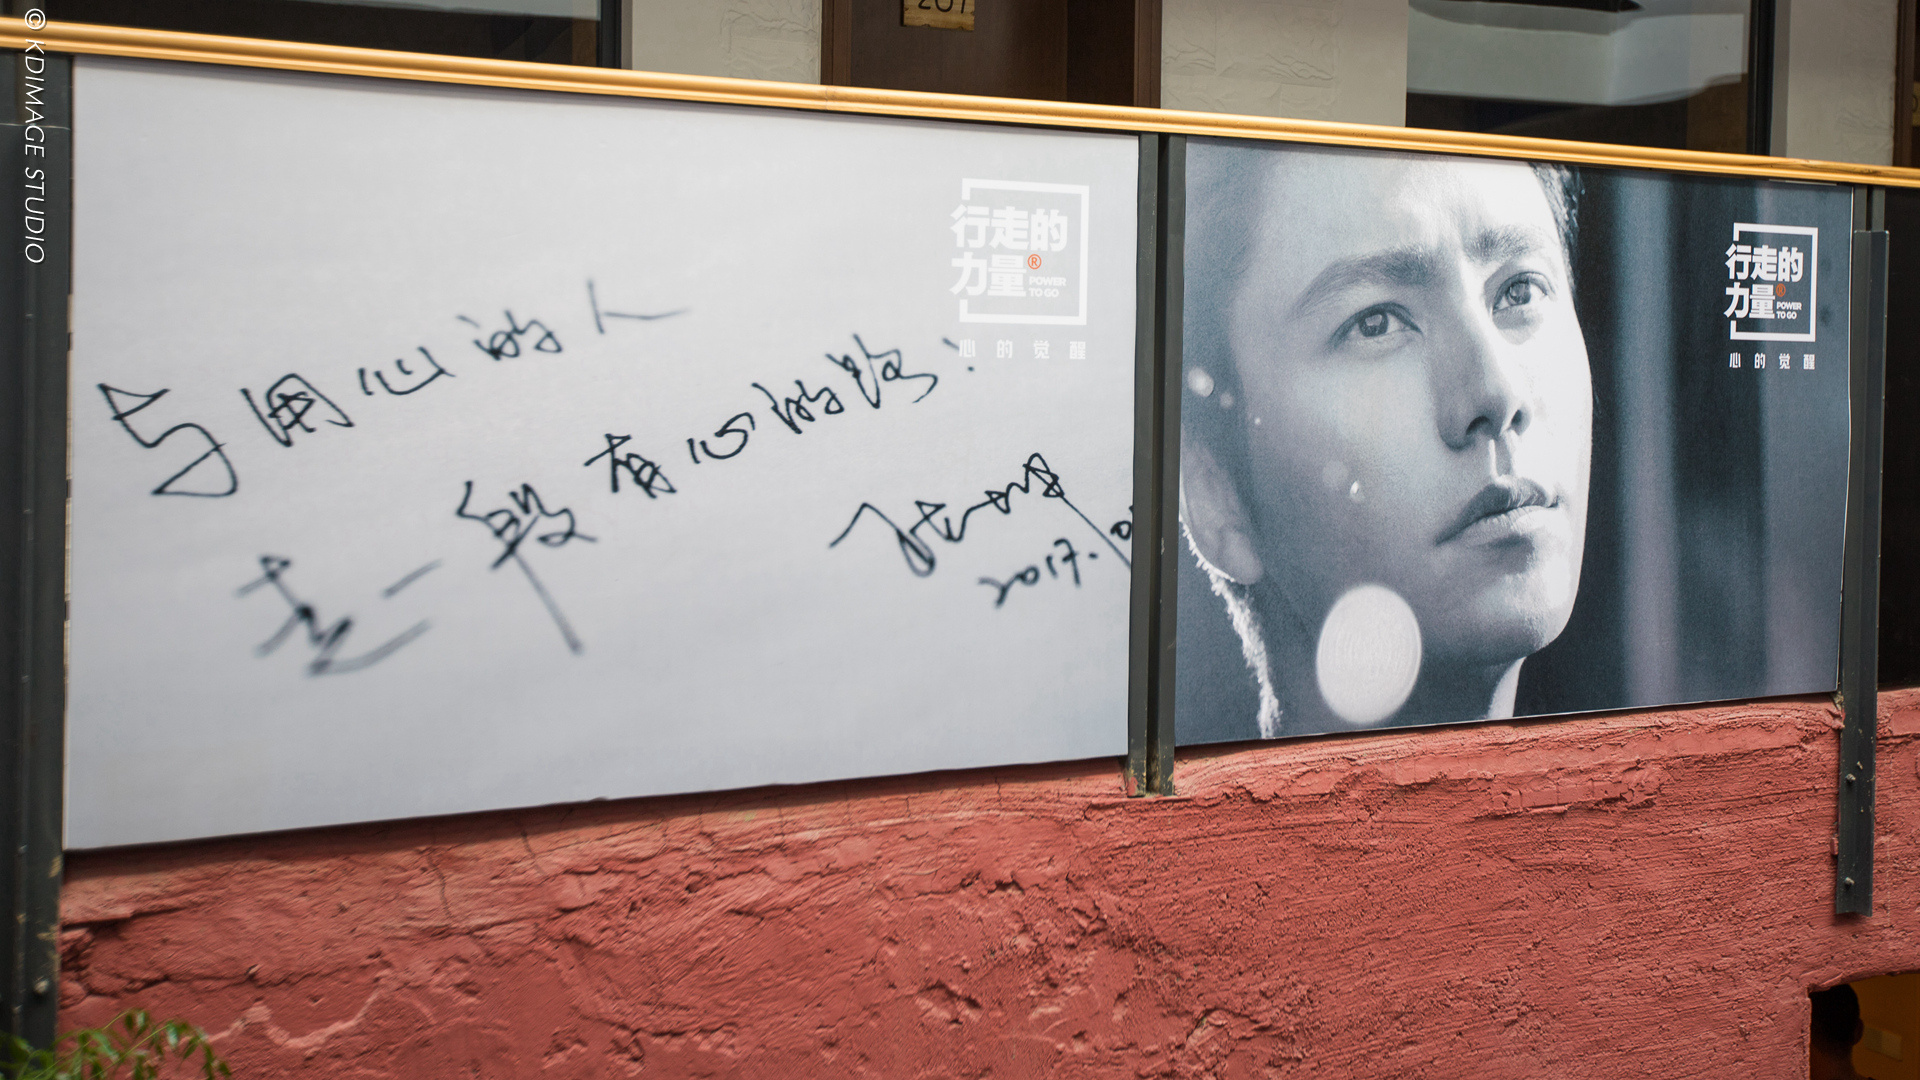 ©KDIMAGE STUDIO
207
与用心的人
走一段有心的路!
2017.
行走的
力量®
POWER
TO GO
心的觉醒
行走的
力量®
POWER
TO GO
心的觉醒